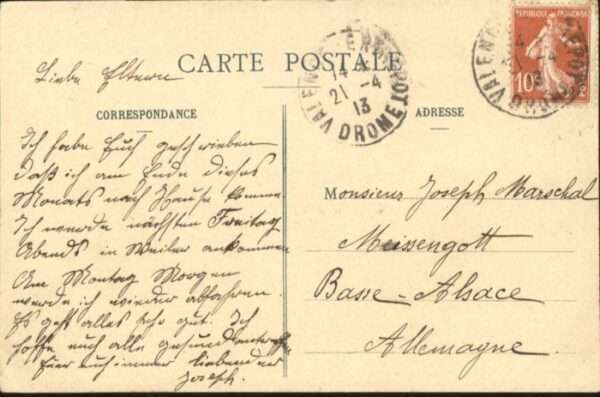 Liebe Eltern
CARTE POSTALE
CORRESPONDANCE
Ich habe Euch geschrieben
daß ich am Ende dieses
Monats nach Hause komme
Ich werde nächsten Freitag
Abends in Weiler ankommen
Am Montag Morgen
werde ich wieder abfahren.
Es geht alles sehr gut. Ich
hoffe euch alle gesund
Euer euch immer liebender
Joseph.
ADRESSE
Monsieur Joseph Marschal
Meissengott
Basse-Alsace
Allemagne.
VALENCE
21-4
13
DROME
REPUBLIQUE FRANÇAISE
10
VALENCE
-4
13